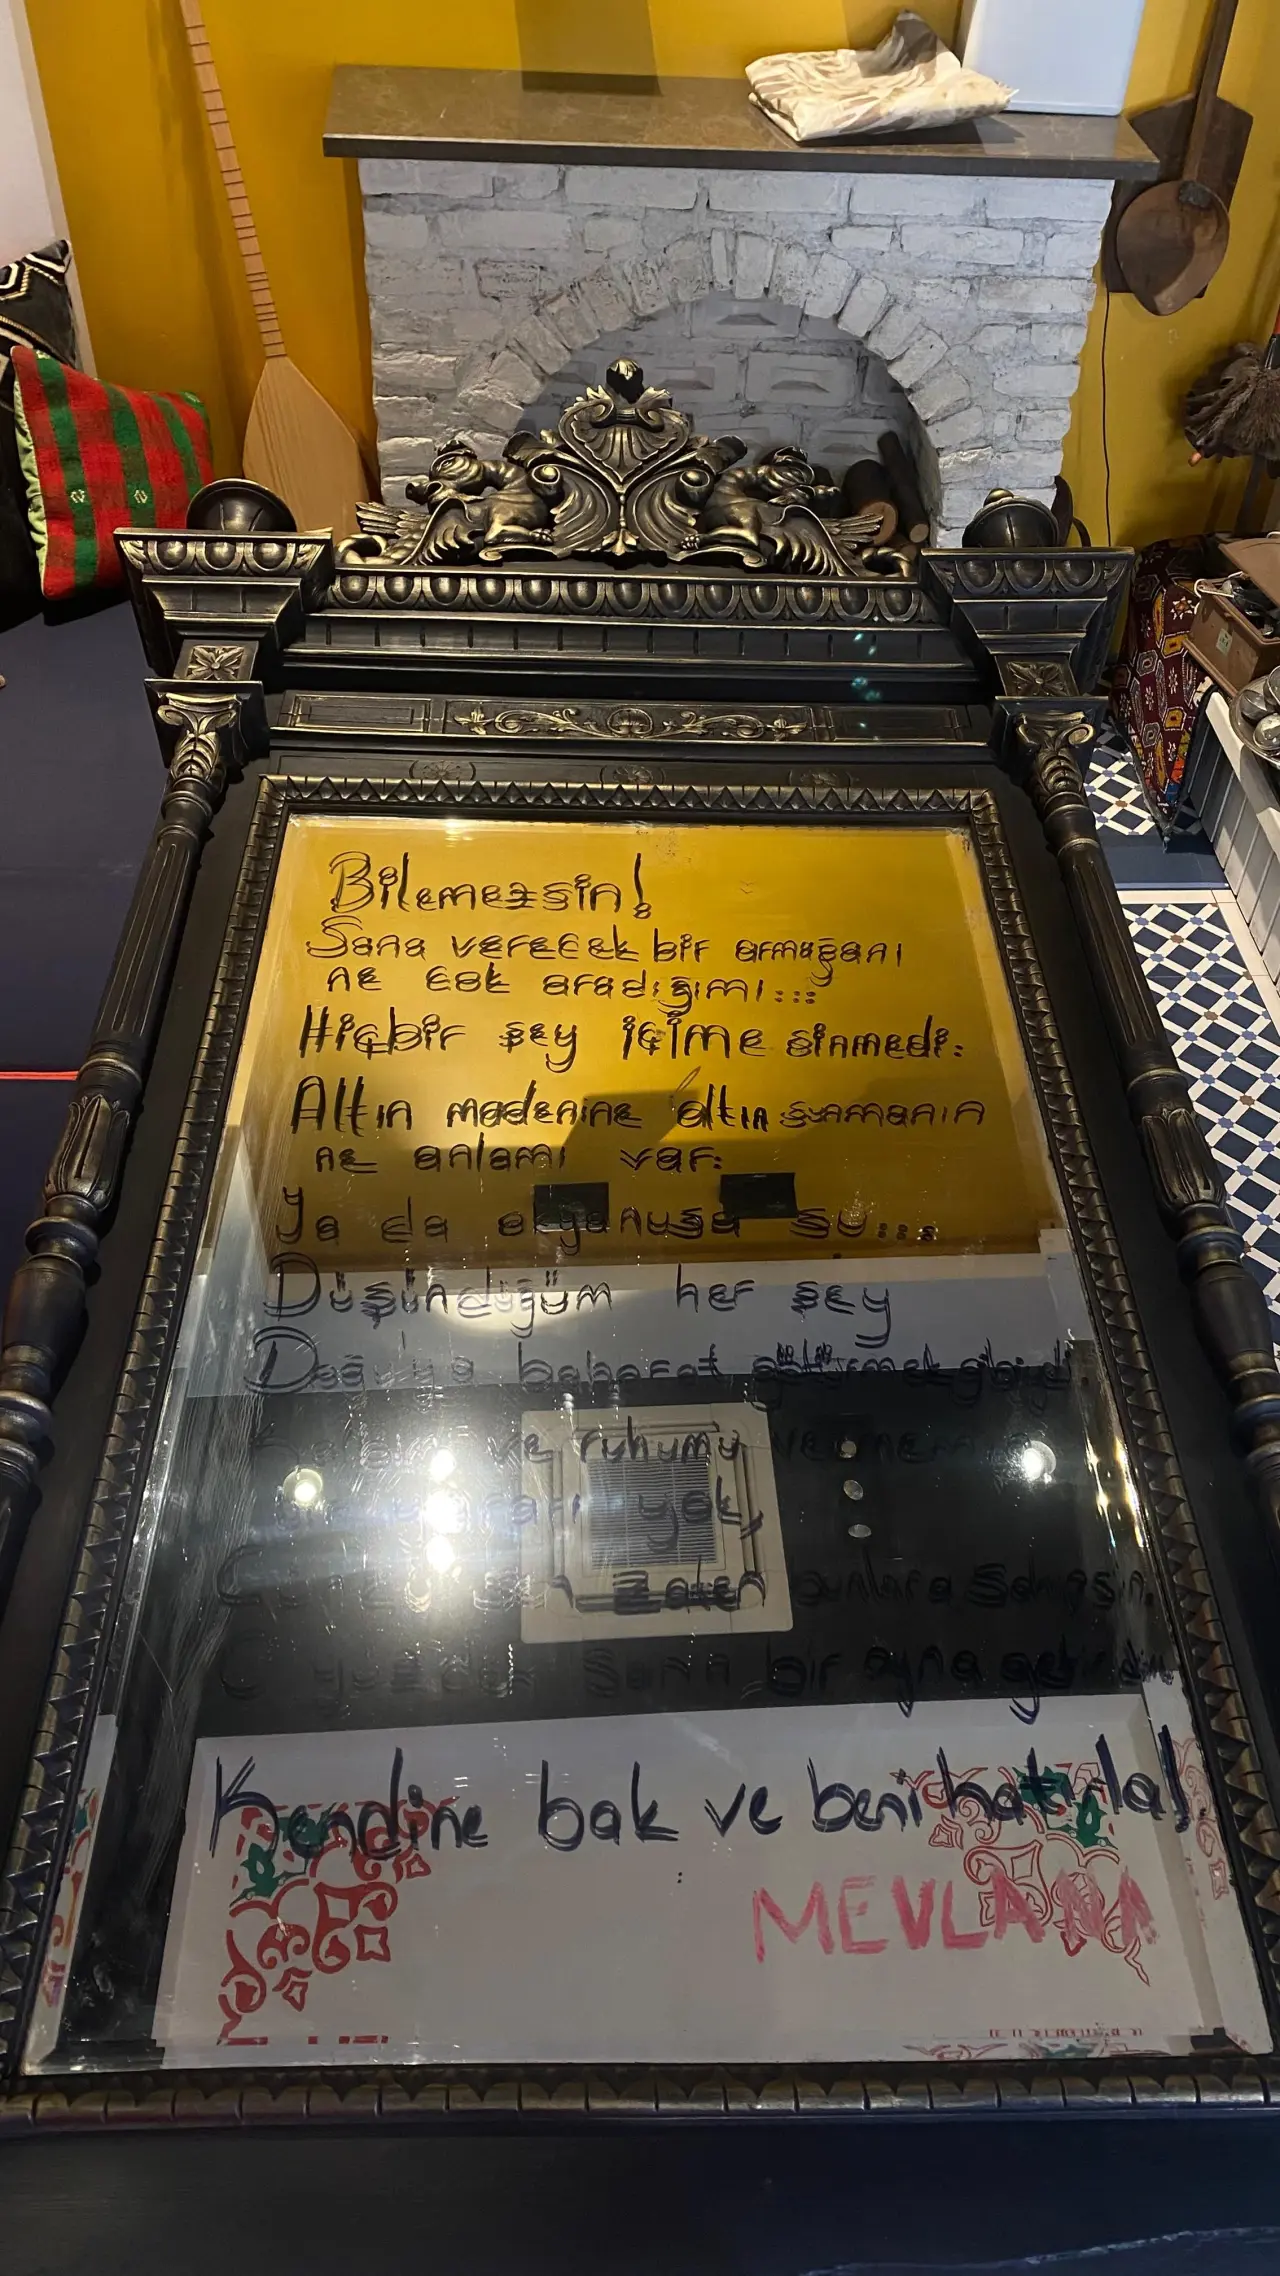 Bilemezsin!
Sana verecek bir armağanı
ne çok aradığımı...
Hiçbir şey içime sinmedi.
Altın madenine altın sunmanın
ne anlamı var.
Ya da okyanusa su...
Düşündüğüm her şey
Doğuya baharat götürmek gibiydi.
Kalbimi ve ruhumu vermemin
yararı yok,
Çünkü sen zaten bunlara sahipsin.
O yüzden Sana bir ayna getirdim
Kendine bak ve beni hatırla!
MEVLANA